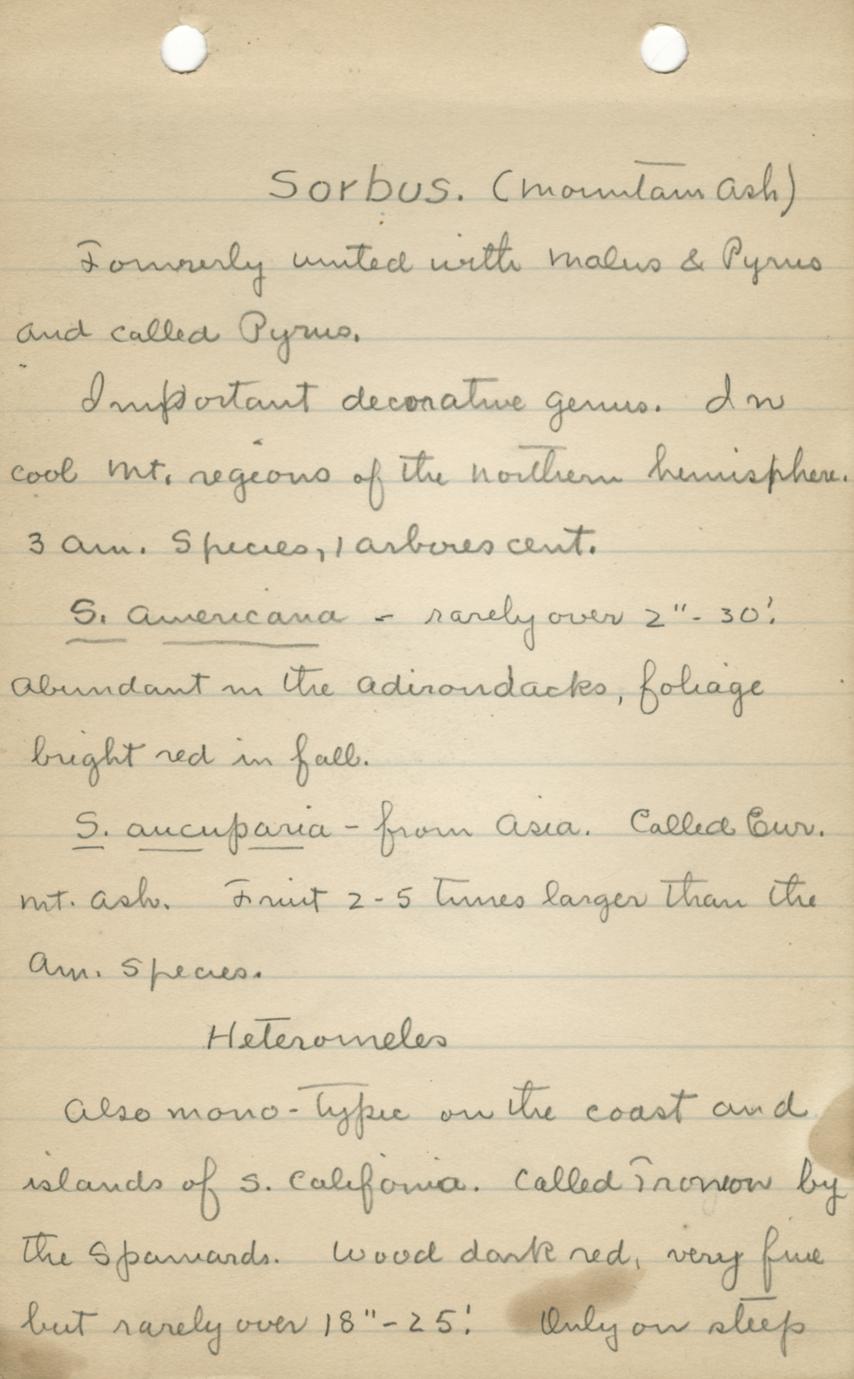 Sorbus. (Mountain Ash)
Formerly united with Malus & Pyrus
and called Pyrus.
Important decorative genus. In
cool Mt. regions of the northern hemisphere.
3 Am. Species, 1 arborescent.
S. americana - rarely over 2"- 30'.
abundant in the Adirondacks, foliage
bright red in fall.
S. aucuparia - from Asia. Called Eur.
Mt. Ash. Fruit 2-5 times larger than the
Am. Species.
Heteromeles
Also mono-typic on the coast and
islands of S. Califonia. Called by
the Spaniards. Wood dark red, very fine
but rarely over 18"-25'. Only on steep